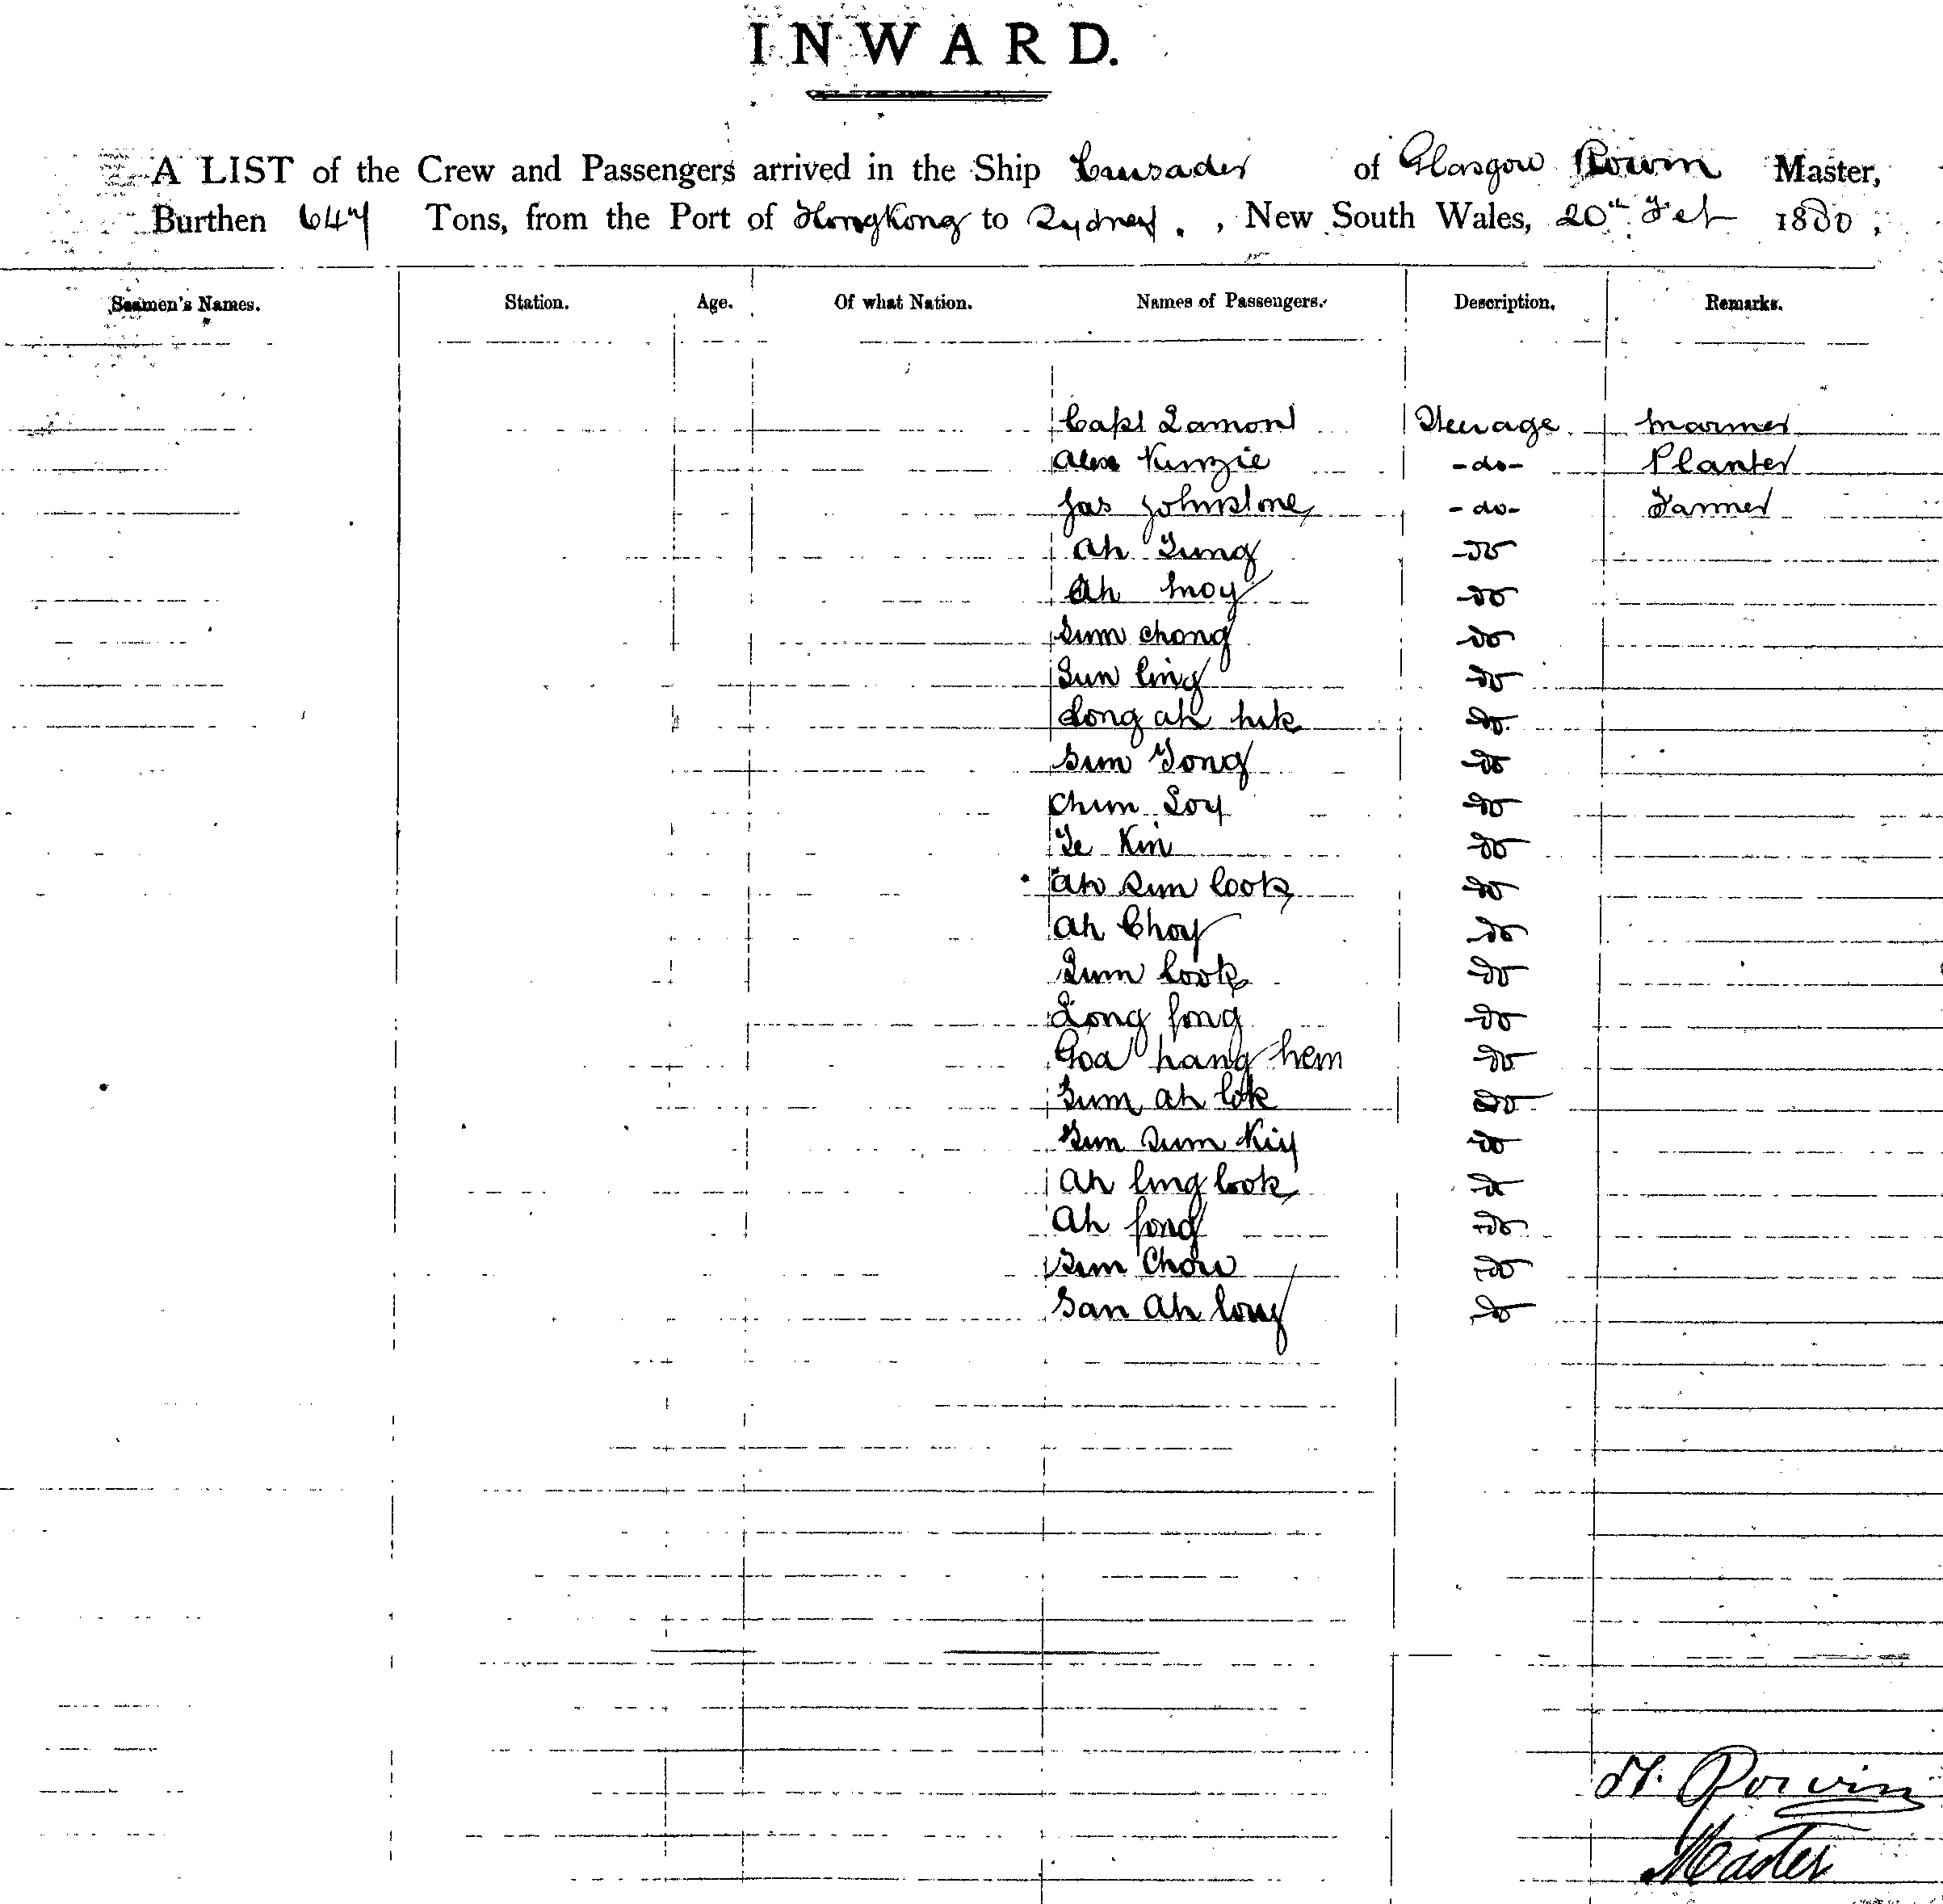 INWARD.
A LIST of the Crew and Passengers arrived in the Ship Crusader of Glasgow Master,
Burthen 647 Tons, from the Port of HongKong to Sydney. , New South Wales, 20th Feb 1880,
Seamen's Names. Station. Age. Of what Nation. Names of Passengers. Description. Remarks.
Capt Lamont Steerage Mariner
Alex Kenzie -do- Planter
Jas Johnstone -do- Farmer
Ah Do
Ah Moy Do
Sum Chong Do
Sun Ling Do
Long Ah Do
Sum Do
Chum Do
Kin Do
Ah Sum Cook Do
Ah Choy Do
Cook Do
Long Fong Do
Goa hang hem Do
Ah Do
Sum Do
Ah Ling Cook Do
Ah Fong Do
Chow Do
San Ah Long Do
Master